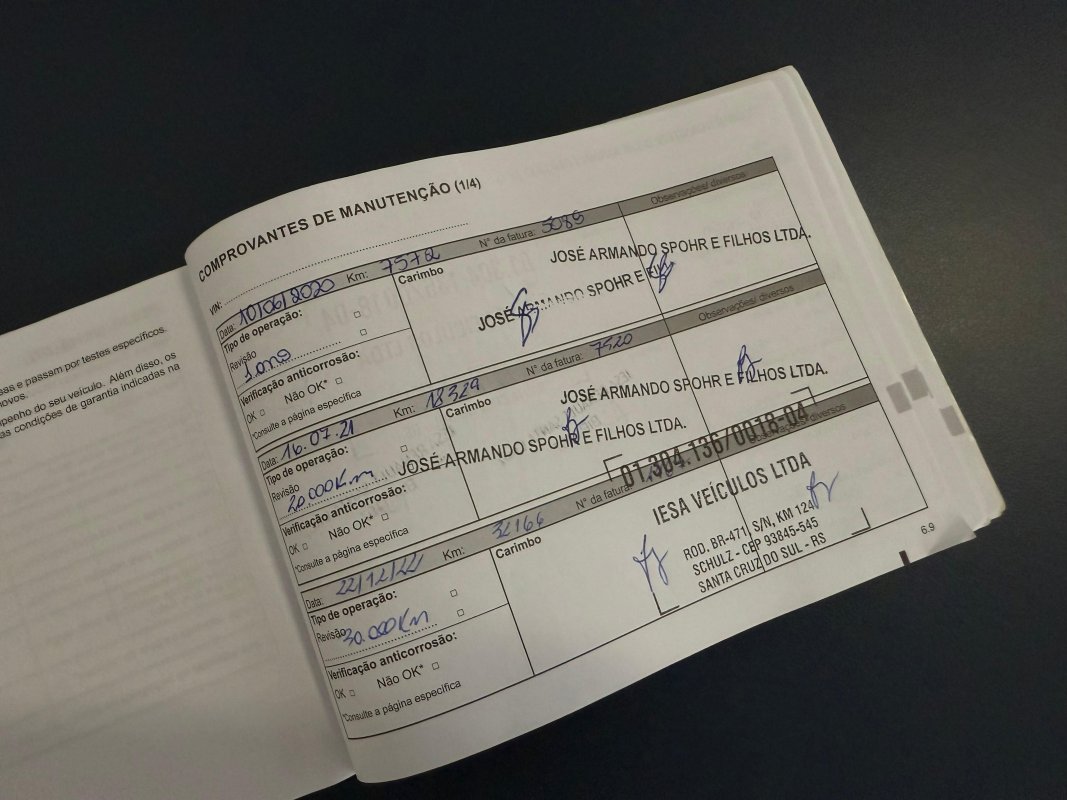 eas e passam por testes específicos.
novos.
penho do seu veículo. Além disso, os
as condições de garantia indicadas na
COMPROVANTES DE MANUTENÇÃO (1/4)
VIN:
Data: 10/06/2020 Km: 7572 N° da fatura: 5089 Observações/ diversos
Tipo de operação:
Carimbo
JOSÉ ARMANDO SPOHR E FILHOS LTDA.
Revisão
JOSÉ ARMANDO SPOHR E FIL
1 ano
Verificação anticorrosão:
OK Não OK*
*Consulte a página específica
Data: 16.07.21 Km: 18329 N° da fatura: 7520 Observações/ diversos
Tipo de operação:
Carimbo
JOSÉ ARMANDO SPOHR E FILHOS LTDA.
Revisão
20.000Km
JOSÉ ARMANDO SPOHR E FILHOS LTDA.
Verificação anticorrosão:
OK Não OK*
*Consulte a página específica
Data: 22/12/22 Km: 32166 N° da fatura: Observações/ diversos
01.304.136/0018-04
Tipo de operação:
Carimbo
IESA VEÍCULOS LTDA
Revisão
30.000Km
ROD. BR-471, S/N, KM 124
SCHULZ - CEP 93845-545
SANTA CRUZ DO SUL - RS
Verificação anticorrosão:
OK Não OK*
*Consulte a página específica
6.9